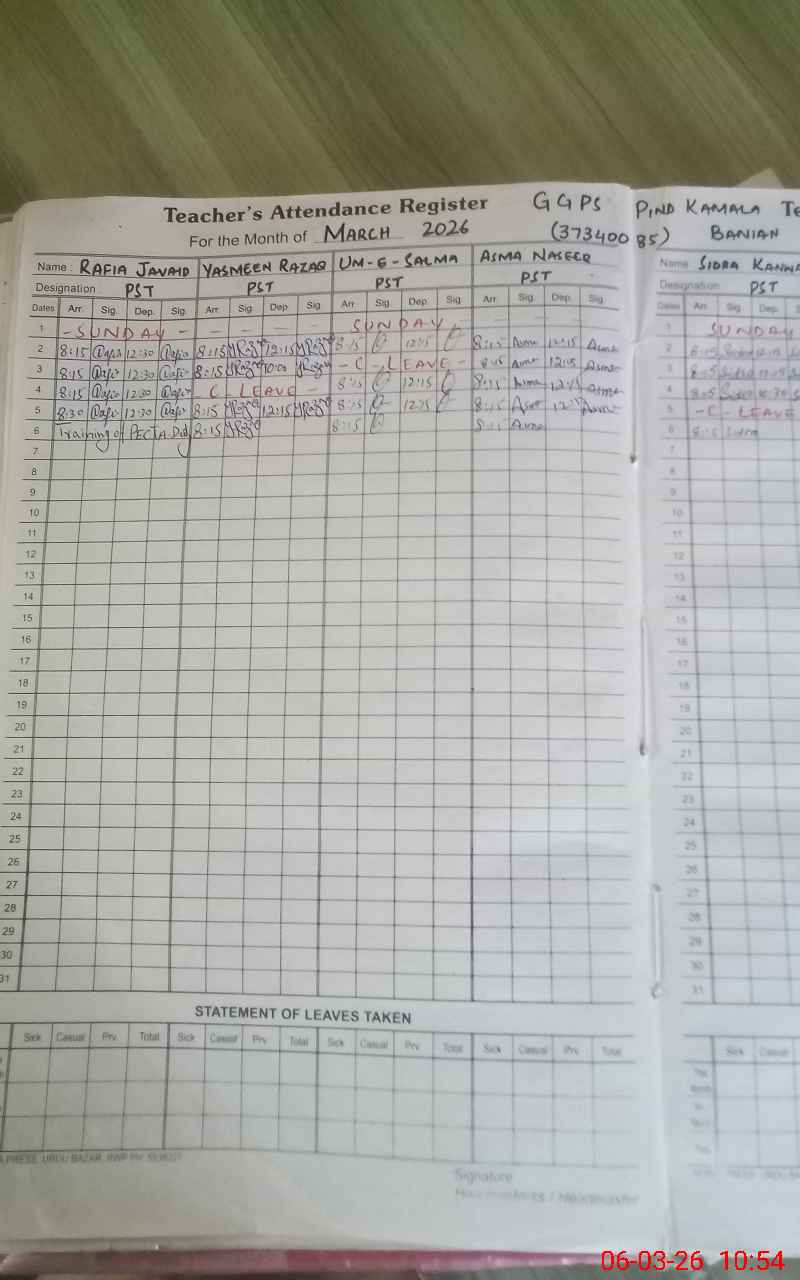 Teacher's Attendance Register GGPS PIND KAMALA Te
For the Month of MARCH 2026 (37340085) BANIAN
Name: RAFIA JAVAID YASMEEN RAZAQ UM-E-SALMA ASMA NASEER Name SIDRA KANWA
Designation PST PST PST PST Designation PST
Dates Arr. Sig. Dep. Sig. Arr. Sig. Dep. Sig. Arr. Sig. Dep. Sig. Arr. Sig. Dep. Sig. Dates Arr. Sig. Dep. S
1 - SUNDAY - - - - - SUNDAY - - - - 1 SUNDAY
2 8:15 12:30 8:15 12:15 8:15 12:15 8:15 Asma 12:15 Asma 2
3 8:15 12:30 8:15 10:00 - C - LEAVE - 8:15 Asma 12:15 Asma 3
4 8:15 12:30 - C LEAVE 8:15 12:15 8:15 Asma 12:15 Asma 4
5 8:30 12:30 8:15 12:15 8:15 12:15 8:15 Asma 12:15 Asma 5 - C - LEAVE
6 Training of PECTA 8:15 8:15 8:15 Asma 6
7 7
8 8
9 9
10 10
11 11
12 12
13 13
14 14
15 15
16 16
17 17
18 18
19 19
20 20
21 21
22 22
23 23
24 24
25 25
26 26
27 27
28 28
29 29
30 30
31 31
STATEMENT OF LEAVES TAKEN
Sick Casual Prv. Total Sick Casual Prv. Total Sick Casual Prv. Total Sick Casual Prv. Total Sick Casual
PRESS, URDU BAZAR, RWP
Signature
Headmistress / Headmaster
06-03-26 10:54